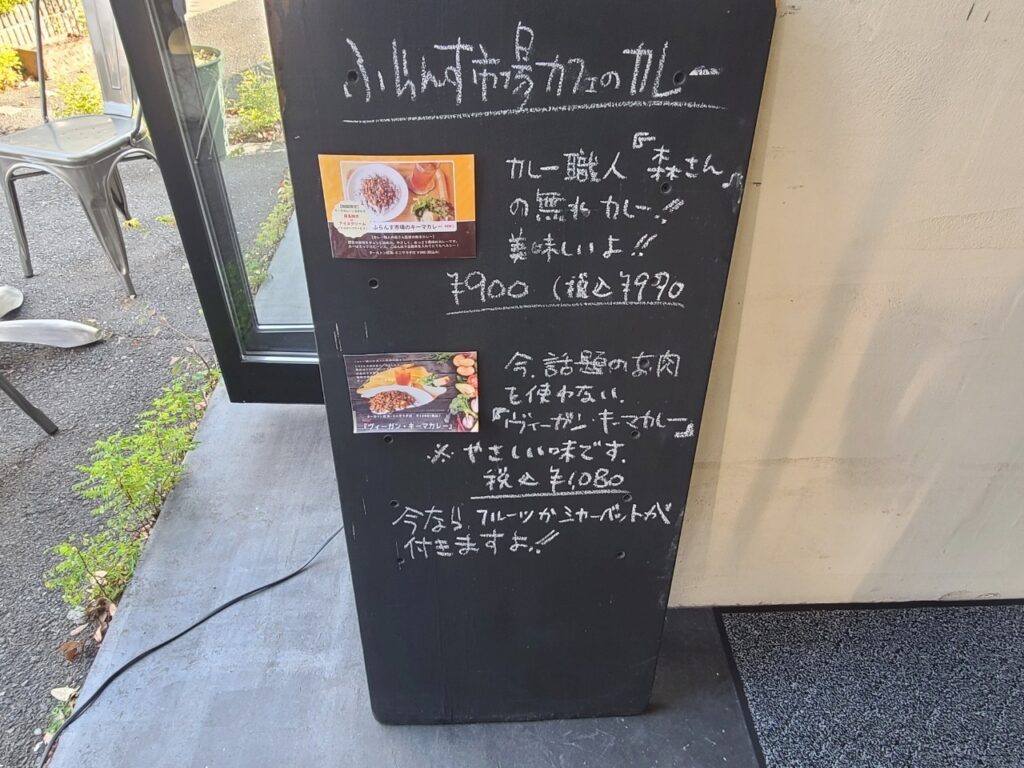 ふらんす市場カフェのカレー
カレー職人『森さん』
の無水カレー!!
美味しいよ!!
¥900 (税込¥990
ふらんす市場のキーマカレー
今、話題のお肉
を使わない、
『ヴィーガン・キーマカレー』
※やさしい味です。
税込¥1,080
『ヴィーガン・キーマカレー』
今なら、フルーツかシャーベットが
付きますよ!!